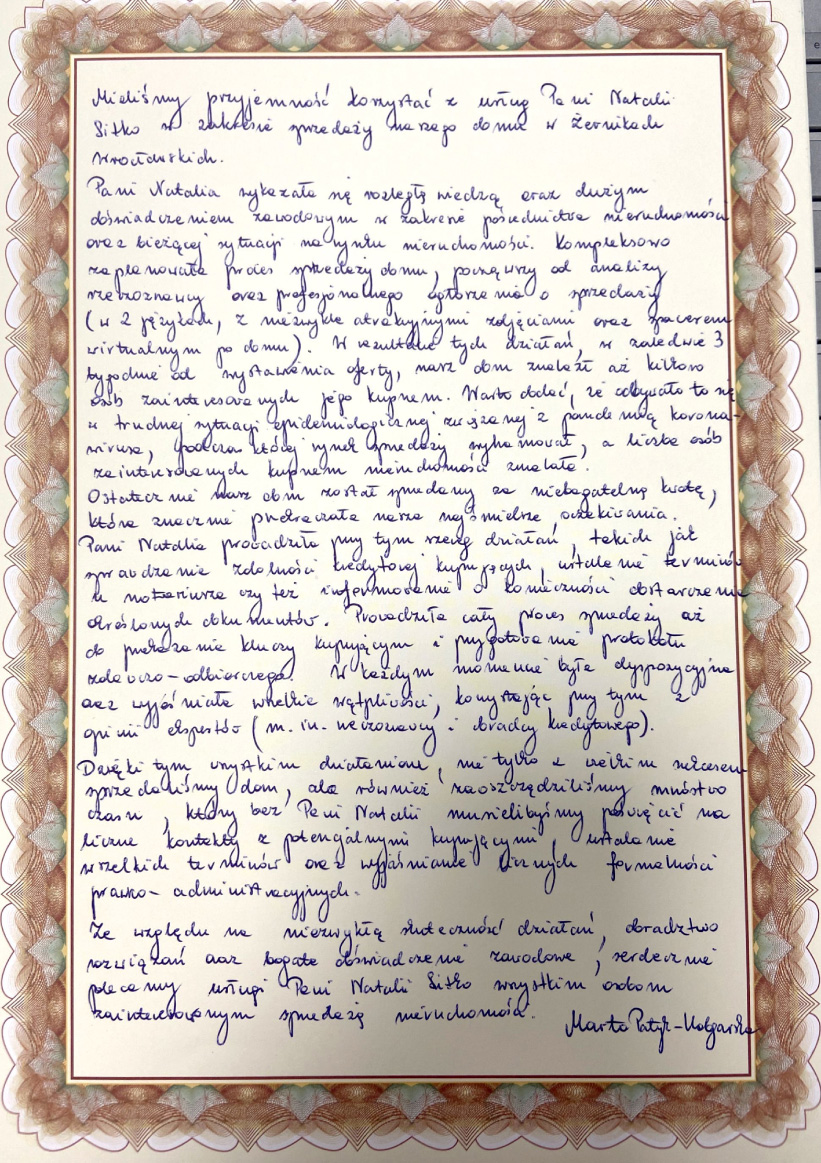 Mieliśmy przyjemność korzystać z usług Pani Natalii
Sitko w zakresie sprzedaży naszego domu w Żernikach
Wrocławskich.
Pani Natalia wykazała się rozległą wiedzą oraz dużym
doświadczeniem zawodowym w zakresie pośrednictwa nieruchomości
oraz bieżącej sytuacji na rynku nieruchomości. Kompleksowo
zaplanowała proces sprzedaży domu, począwszy od analizy
rzeczoznawcy oraz profesjonalnego ogłoszenia o sprzedaży
(w 2 językach, z niezwykle atrakcyjnymi zdjęciami oraz spacerem
wirtualnym po domu). W rezultacie tych działań, w zaledwie 3
tygodnie od wystawienia oferty, nasz dom znalazł aż kilkoro
osób zainteresowanych jego kupnem. Warto dodać, że odbywało to się
w trudnej sytuacji epidemiologicznej związanej z pandemią korona-
wirusa, podczas której rynek sprzedaży wyhamował, a liczba osób
zainteresowanych kupnem nieruchomości zmalała.
Ostatecznie nasz dom został sprzedany za niebagatelną kwotę,
która znacznie przekraczała nasze najśmielsze oczekiwania.
Pani Natalia prowadziła przy tym szereg działań, takich jak
sprawdzanie zdolności kredytowej kupujących, ustalanie terminów
u notariusza czy też informowanie o konieczności dostarczenia
określonych dokumentów. Prowadziła cały proces sprzedaży aż
do przekazania kluczy kupującym i przygotowania protokołu
zdawczo-odbiorczego. W każdym momencie była dyspozycyjna
oraz wyjaśniała wszelkie wątpliwości, korzystając przy tym z
opinii ekspertów (m.in. rzeczoznawcy i doradcy kredytowego).
Dzięki tym wszystkim działaniom, nie tylko z wielkim sukcesem
sprzedaliśmy dom, ale również zaoszczędziliśmy mnóstwo
czasu, który bez Pani Natalii musielibyśmy poświęcić na
liczne kontakty z potencjalnymi kupującymi, ustalanie
wszelkich terminów oraz wyjaśnianie licznych formalności
prawno-administracyjnych.
Ze względu na niezwykłą skuteczność działań, doradztwo
rozwiązań oraz bogate doświadczenie zawodowe, serdecznie
polecamy usługi Pani Natalii Sitko wszystkim osobom
zainteresowanym sprzedażą nieruchomości.
Marta